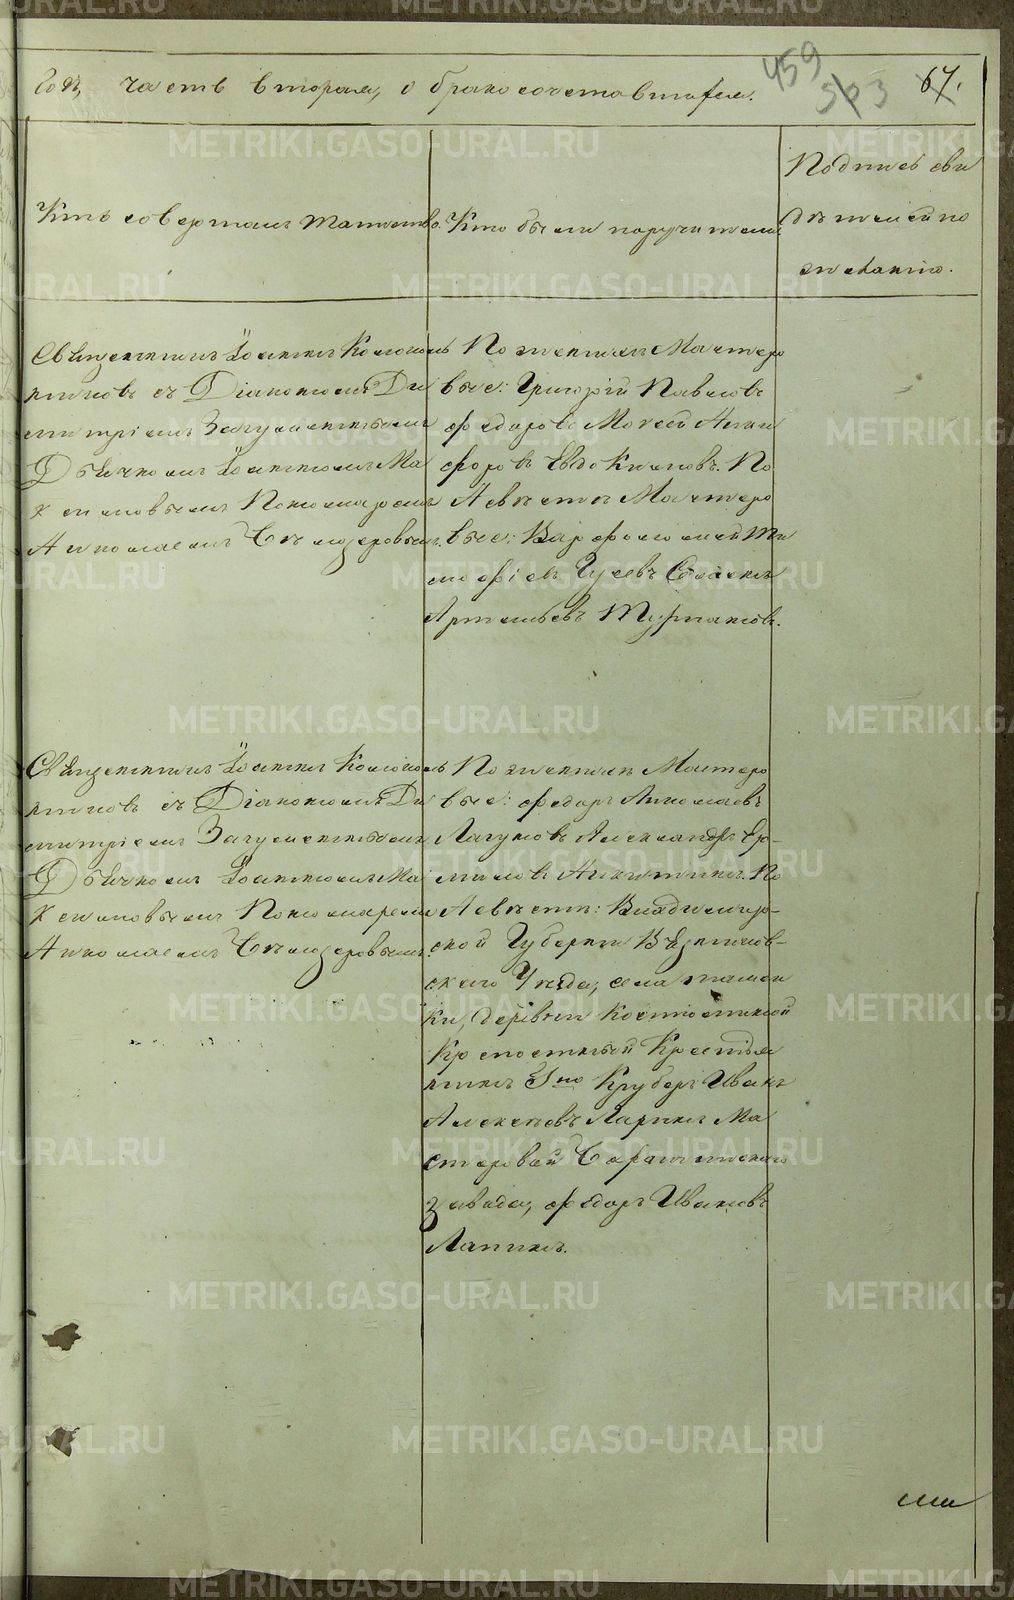 Годъ, часть вторая, о бракосочетавшихся.
459
503
67.
Кто совершалъ таинство.
Кто были поручители
Подпись сви
дѣтелей по
желанію.
Священникъ Іоаннъ Колоколь
никовъ съ Діакономъ Ди
митріемъ Загуменнымъ
Дьячкомъ Іоанномъ Ма
ксимовымъ Пономаремъ
Николаемъ
По женихѣ Мастеро
вые: Григорій Павловъ
Федоровъ Моисей Ники
форовъ Евдокимовъ. По
Невѣстѣ Мастеро
вые: Варфоломей Ти
мофѣевъ Гусевъ
Артемьевъ
Священникъ Іоаннъ Колоколь
никовъ съ Діакономъ Ди
митріемъ Загуменнымъ
Дьячкомъ Іоанномъ Ма
ксимовымъ Пономаремъ
Николаемъ
По женихѣ Мастеро
вые: Федоръ Николаевъ
Лагуновъ Александръ Ер-
миловъ Никитинъ. По
Невѣстѣ: Владимир-
ской Губерніи Вязников-
скаго Уѣзда, села
ки, деревни
Крѣпостный Крестья
нинъ Иванъ
Алексѣевъ Ларинъ Ма
стеровой
завода, Федоръ Ивановъ
Лапинъ.
METRIKI.GASO-URAL.RU